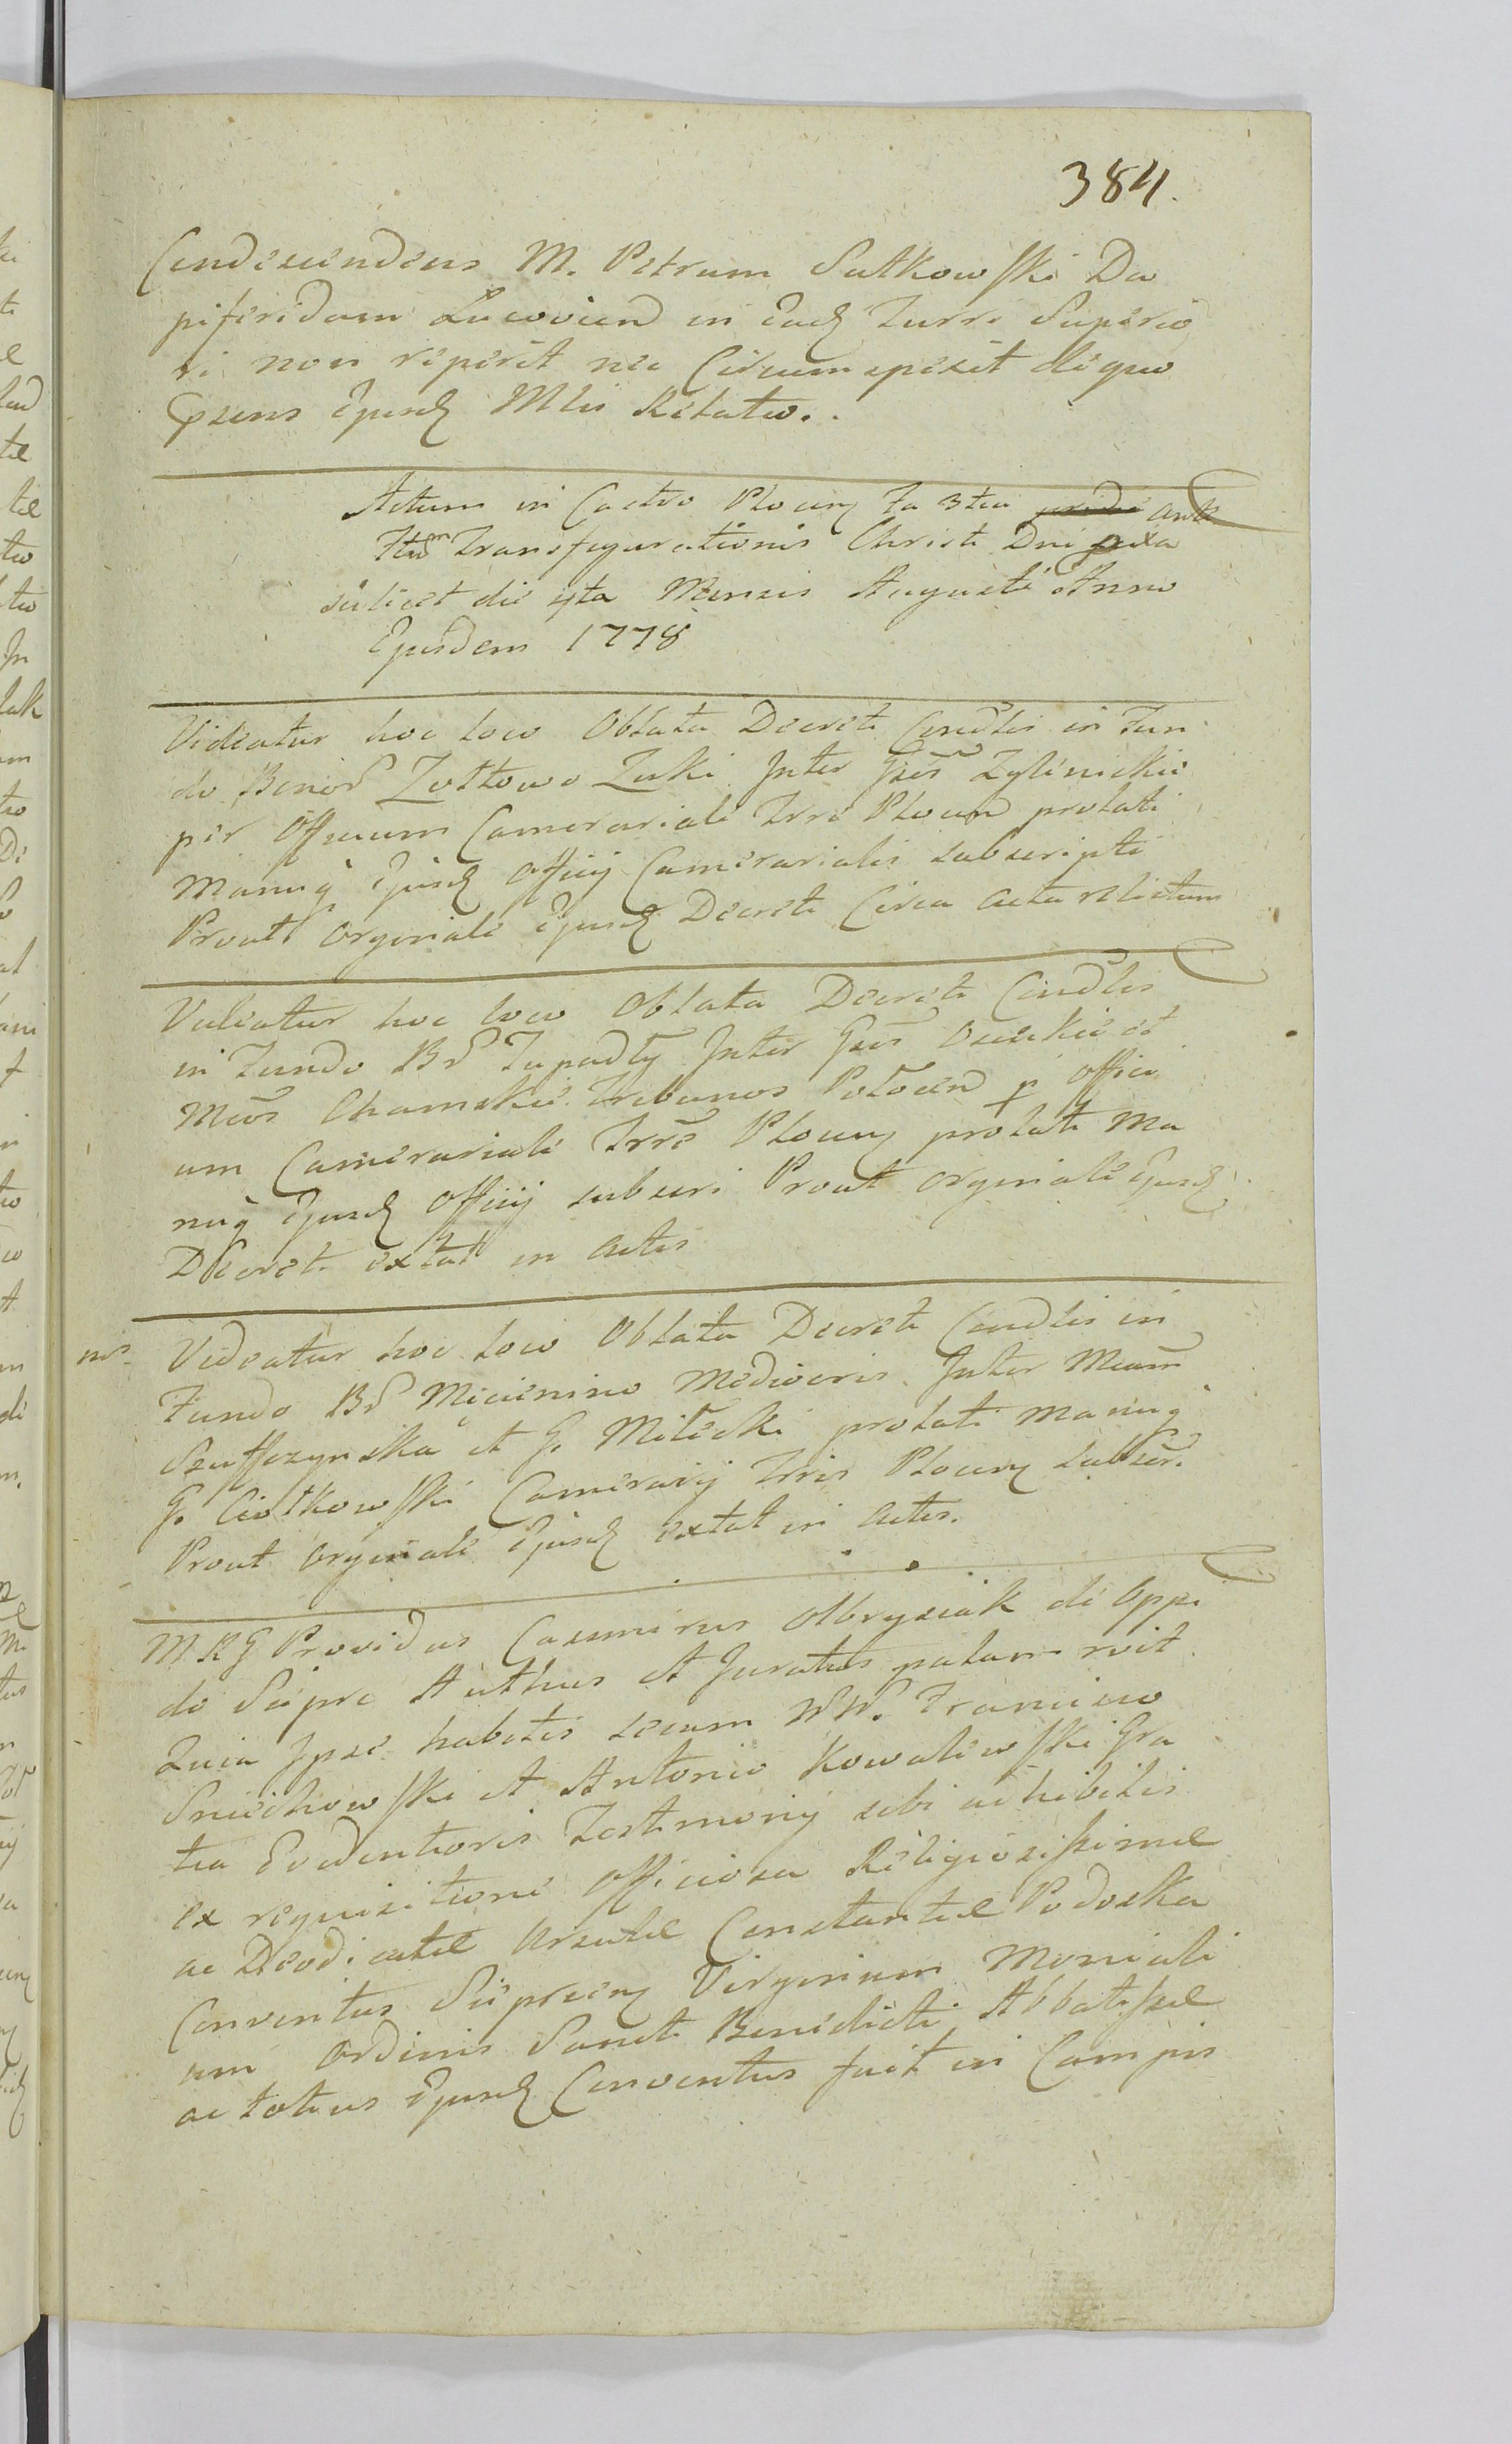 384.
Condescendens M. Petrum Sutkowski Da
piferidam Lucovien in Eadq Turri Superio
ri non reperit nec Circumspexit de quo
Psens Ejusdq Mlis Relatio.
Actum in Castro Plocenq Fa 3tia ante
Ftum Transfigurationis Christi Dni pxa
scilicet die 4ta Mensis Augusti Anno
Ejusdem 1778
Videatur hoc loco Oblata Decreti Condlis in Fun
do Bonor Zółtowo Luki Inter Gsos Zylinickie
per Officium Camerariale Trre Plocen prolati
Manuq Ejusdq Officij Camerarialis subscripti
Prout Orginale Ejusdq Decreti Circa acta relictum
Videatur hoc loco Oblata Decreti Condlis
in Fundo Br Zupadły Inter Gsos Osieckie et
Mcos Chamskie Tribunos Płocen p Offici
um Camerariale Trre Plocenq prolati Ma
nuq Ejusdq Officij subscri Prout Orginale Ejusdq
Decreti extat in actis
Videatur hoc loco Oblata Decreti Condlis in
Fundo Br Miecienino Mediocris Inter Mcam
et G. Milecki prolati manuq
G. Ciołkowski Camerarij Trris Plocenq subscr.
Prout Orginale Ejusdq extat in actis.
MRG Providus Casimirus Olbrysiak de Oppi
do Sierpc Authus et Juratus palam rvit
Quia Ipse habitis secum NN. Francisco
Sniechowski et Antonio Kowalewski Gra
tia Evidentioris Testimonij sibi adhibitis
ex requisitione Officiosa Religiosissimæ
ac Deodicatæ Ursulæ Constantiæ Podoska
Conventus Sierpcenq Virginum Moniali
um Ordinis Sancti Benedicti Abbatissæ
ac totius Ejusdq Conventus fuit in Campis